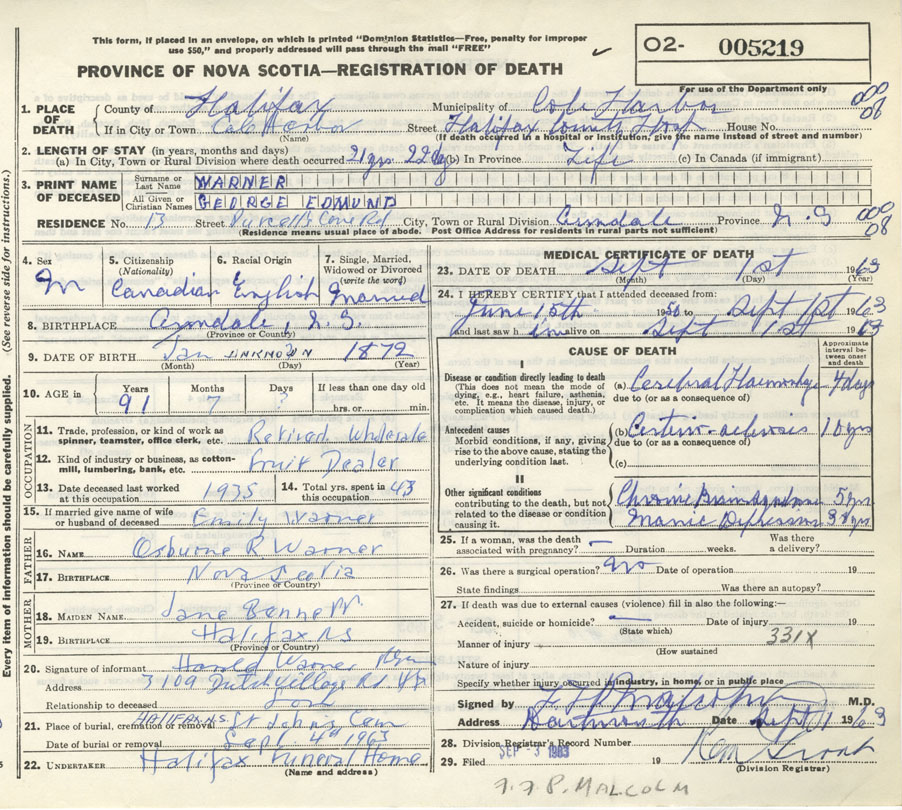 This form, if placed in an envelope, on which is printed "Dominion Statistics—Free, penalty for improper
use $50," and properly addressed will pass through the mail "FREE"
PROVINCE OF NOVA SCOTIA—REGISTRATION OF DEATH
O2- 005219
For use of the Department only
(See reverse side for instructions.)
Every item of information should be carefully supplied.
1. PLACE OF DEATH
County of Halifax Municipality of Cole Harbor
If in City or Town Cole Harbor Street Halifax County Hosp House No.
(Name) (If death occurred in a hospital or institution, give the name instead of street and number)
2. LENGTH OF STAY (in years, months and days)
(a) In City, Town or Rural Division where death occurred 21 yrs 22 (b) In Province Life (c) In Canada (if immigrant)
3. PRINT NAME OF DECEASED
Surname or Last Name WARNER
All Given or Christian Names GEORGE EDMUND
RESIDENCE No. 13 Street Purcell's Cove Rd City, Town or Rural Division Armdale Province N.S
(Residence means usual place of abode. Post Office Address for residents in rural parts not sufficient)
000
08
000
08
4. Sex M
5. Citizenship (Nationality) Canadian
6. Racial Origin English
7. Single, Married, Widowed or Divorced (write the word) Married
8. BIRTHPLACE Armdale, N.S.
(Province or Country)
9. DATE OF BIRTH Jan UNKNOWN 1872
(Month) (Day) (Year)
10. AGE in Years 91 Months 7 Days ? If less than one day old
hrs. or min.
OCCUPATION
11. Trade, profession, or kind of work as spinner, teamster, office clerk, etc. Retired Wholesale
12. Kind of industry or business, as cotton-mill, lumbering, bank, etc. Fruit Dealer
13. Date deceased last worked at this occupation 1935
14. Total yrs. spent in this occupation 43
15. If married give name of wife or husband of deceased Emily Warner
FATHER
16. NAME Osburne R Warner
17. BIRTHPLACE Nova Scotia
(Province or Country)
MOTHER
18. MAIDEN NAME Jane Bennett
19. BIRTHPLACE Halifax NS
(Province or Country)
20. Signature of informant Harold Warner
Address 3109 Dutch Village Rd Hfx
Relationship to deceased Son
21. Place of burial, cremation or removal HALIFAX N.S. St John's Cem
Date of burial or removal Sept 4th 1963
22. UNDERTAKER Halifax Funeral Home
(Name and address)
MEDICAL CERTIFICATE OF DEATH
23. DATE OF DEATH Sept 1st 1963
(Month) (Day) (Year)
24. I HEREBY CERTIFY that I attended deceased from:
June 15th 1950 to Sept 1st 1963
and last saw h im alive on Sept 1st 1963
CAUSE OF DEATH
Approximate interval between onset and death
I
Disease or condition directly leading to death
(This does not mean the mode of dying, e.g., heart failure, asthenia, etc. It means the disease, injury, or complication which caused death.)
(a) Cerebral Haemorrhage 4 days
due to (or as a consequence of)
Antecedent causes
Morbid conditions, if any, giving rise to the above cause, stating the underlying condition last.
(b) Arterio-sclerosis 10 yrs
due to (or as a consequence of)
(c)
II
Other significant conditions contributing to the death, but not related to the disease or condition causing it.
Chronic 5 yrs
Manic Depression
25. If a woman, was the death associated with pregnancy? — Duration weeks. Was there a delivery?
26. Was there a surgical operation? no Date of operation 19
State findings Was there an autopsy?
27. If death was due to external causes (violence) fill in also the following:—
Accident, suicide or homicide? — Date of injury 19
(State which)
331X
Manner of injury
(How sustained
Nature of injury
Specify whether injury occurred in industry, in home, or in public place
Signed by F F P Malcolm M.D.
Address Dartmouth Date Sept 1 1963
28. Division Registrar's Record Number
29. Filed SEP - 3 1963 19 Ken Grant
(Division Registrar)
F.F.P. MALCOLM